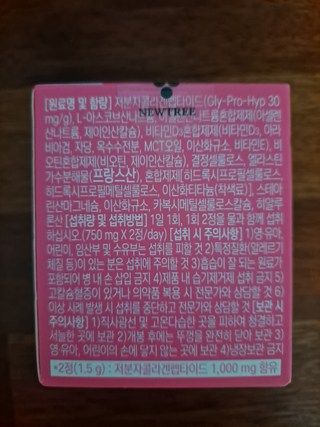 NEWTREE
[원료명 및 함량] 저분자콜라겐펩타이드(Gly-Pro-Hyp 30
mg/g), L-아스코브산나트륨, 아셀렌산나트륨혼합제제(아셀렌
산나트륨, 제이인산칼슘), 비타민D₃혼합제제(비타민D₃, 아라
비아검, 자당, 옥수수전분, MCT오일, 이산화규소, 비타민E), 비
오틴혼합제제(비오틴, 제이인산칼슘), 결정셀룰로스, 엘라스틴
가수분해물(프랑스산), 혼합제제(히드록시프로필셀룰로스,
히드록시프로필메틸셀룰로스, 이산화티타늄(착색료)), 스테아
린산마그네슘, 이산화규소, 카복시메틸셀룰로스칼슘, 히알루
론산 [섭취량 및 섭취방법] 1일 1회, 1회 2정을 물과 함께 섭취
하십시오.(750 mg X 2정/day) [섭취 시 주의사항] 1)영·유아,
어린이, 임산부 및 수유부는 섭취를 피할 것 2)특정질환(알레르기
체질 등)이 있는 분은 섭취에 주의할 것 3)흡습이 잘 되는 원료가
포함되어 병 내 손 삽입 금지 4)제품 내 습기제거제 섭취 금지 5)
고칼슘혈증이 있거나 의약품 복용 시 전문가와 상담할 것 6)
이상 사례 발생 시 섭취를 중단하고 전문가와 상담할 것 [보관 시
주의사항] 1)직사광선 및 고온다습한 곳을 피하여 청결하고
서늘한 곳에 보관 2)개봉 후에는 뚜껑을 완전히 닫아 보관 3)
영·유아, 어린이의 손에 닿지 않는 곳에 보관 4)냉장보관 금지
*2정(1.5 g) : 저분자콜라겐펩타이드 1,000 mg 함유